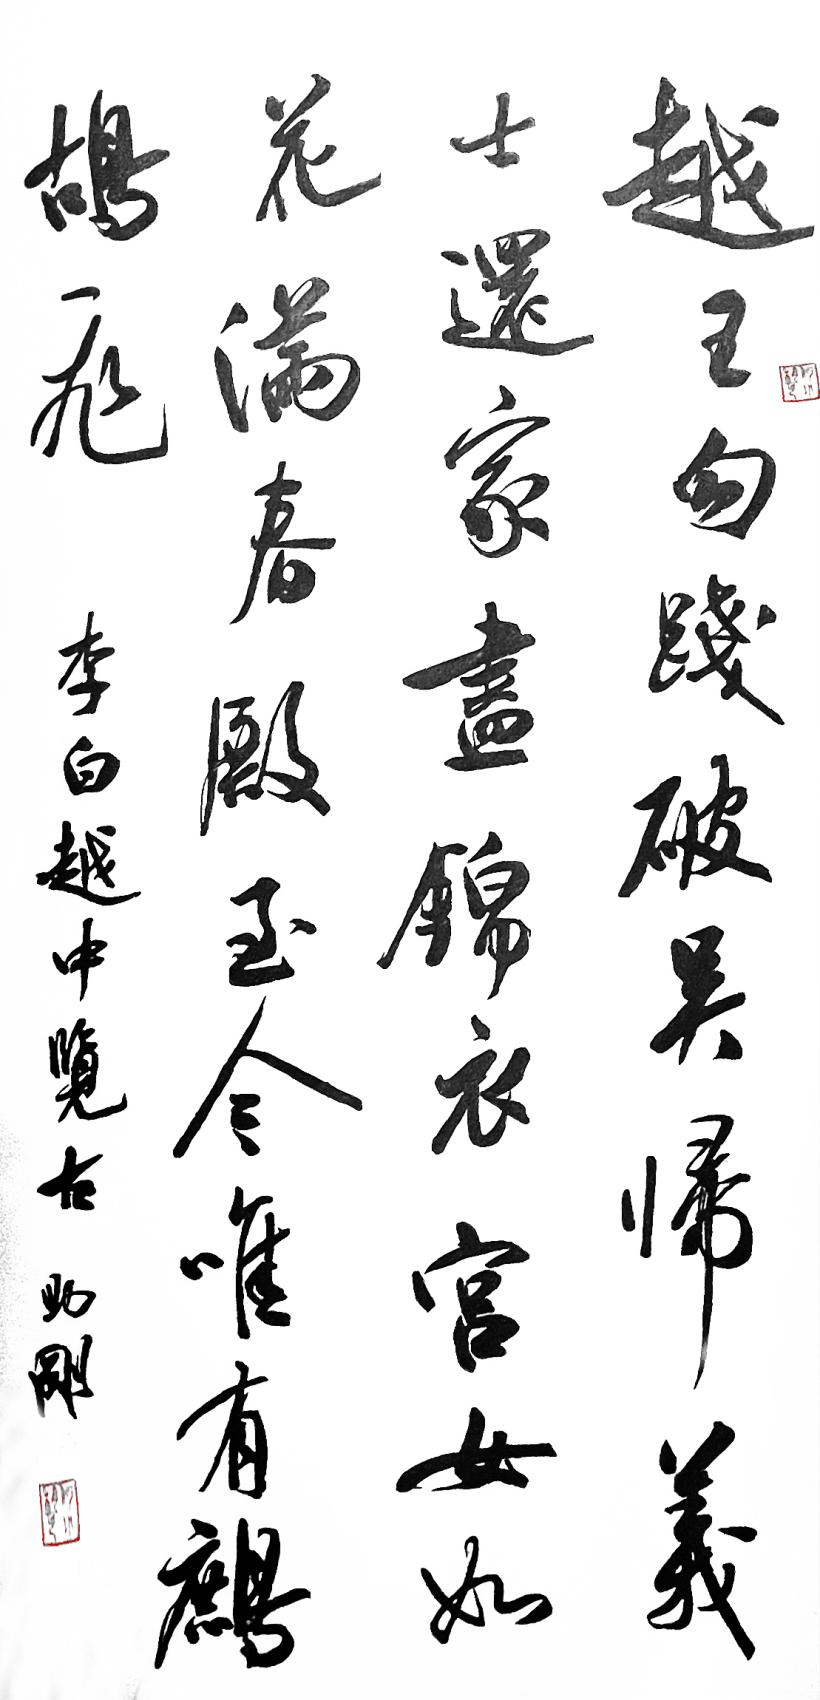 越王勾踐破吴歸義
士還家盡錦衣宮女如
花滿春殿至今唯有鷓
鴣飛
李白越中覽古 助剛